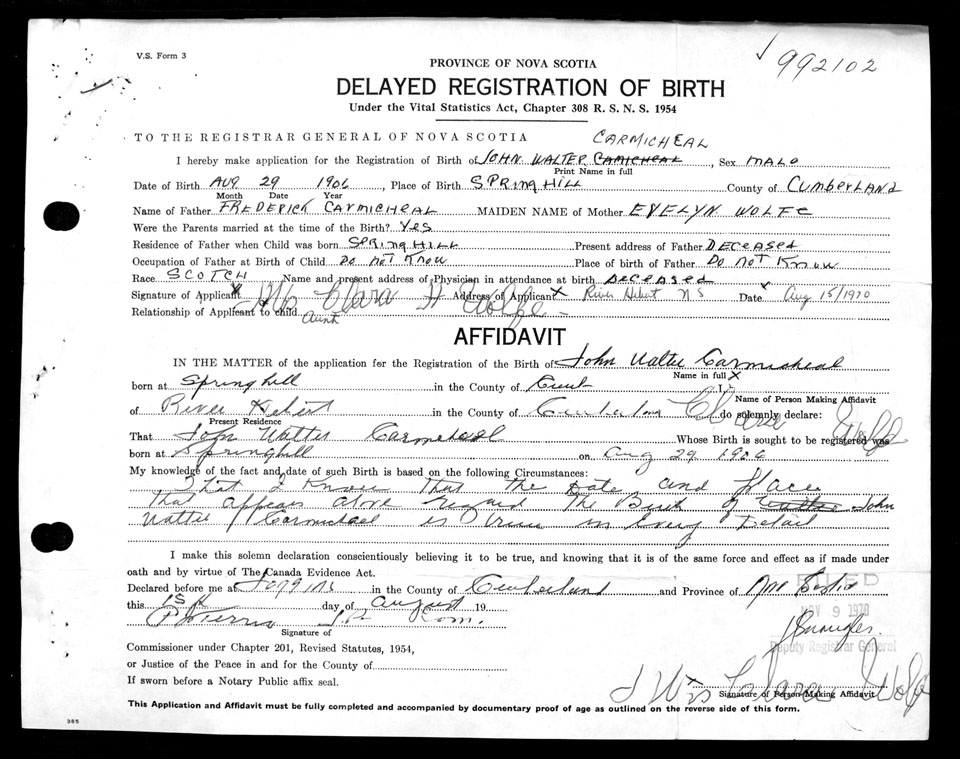 V.S. Form 3
992102
PROVINCE OF NOVA SCOTIA
DELAYED REGISTRATION OF BIRTH
Under the Vital Statistics Act, Chapter 308 R. S. N. S. 1954
TO THE REGISTRAR GENERAL OF NOVA SCOTIA CARMICHEAL
I hereby make application for the Registration of Birth of JOHN WALTER CAMICHEAL, Sex MALE
Print Name in full
Date of Birth AUG 29 1906, Place of Birth SPRINGHILL County of CUMBERLAND
Month Date Year
Name of Father FREDERICK CARMICHEAL MAIDEN NAME of Mother EVELYN WOLFE
Were the Parents married at the time of the Birth? YES
Residence of Father when Child was born SPRINGHILL Present address of Father DECEASED
Occupation of Father at Birth of Child DO NOT KNOW Place of birth of Father DO NOT KNOW
Race SCOTCH Name and present address of Physician in attendance at birth DECEASED
Signature of Applicant X Mrs Clara H Wolfe Address of Applicant X River Hebert N S Date X Aug 15/1970
Relationship of Applicant to child Aunt
AFFIDAVIT
IN THE MATTER of the application for the Registration of the Birth of John Walter Carmicheal
Name in full X
born at Springhill in the County of Cumb I,
Name of Person Making Affidavit
of River Hebert in the County of Cumberland Clara Wolfe do solemnly declare:
Present Residence
That John Walter Carmicheal Whose Birth is sought to be registered was
born at Springhill on Aug 29 1906
My knowledge of the fact and date of such Birth is based on the following Circumstances:
That I Know that the Date and Place
that appears above regard the Birth of John
Walter Carmicheal is True in Every Detail
I make this solemn declaration conscientiously believing it to be true, and knowing that it is of the same force and effect as if made under
oath and by virtue of The Canada Evidence Act.
Declared before me at Joggins in the County of Cumberland and Province of Nova Scotia
FILED
this 15th day of August 19
NOV 9 1970
Com.
Signature of
Deputy Registrar General
Commissioner under Chapter 201, Revised Statutes, 1954,
or Justice of the Peace in and for the County of
If sworn before a Notary Public affix seal.
X Mrs Clara Wolfe
Signature of Person Making Affidavit
This Application and Affidavit must be fully completed and accompanied by documentary proof of age as outlined on the reverse side of this form.
385